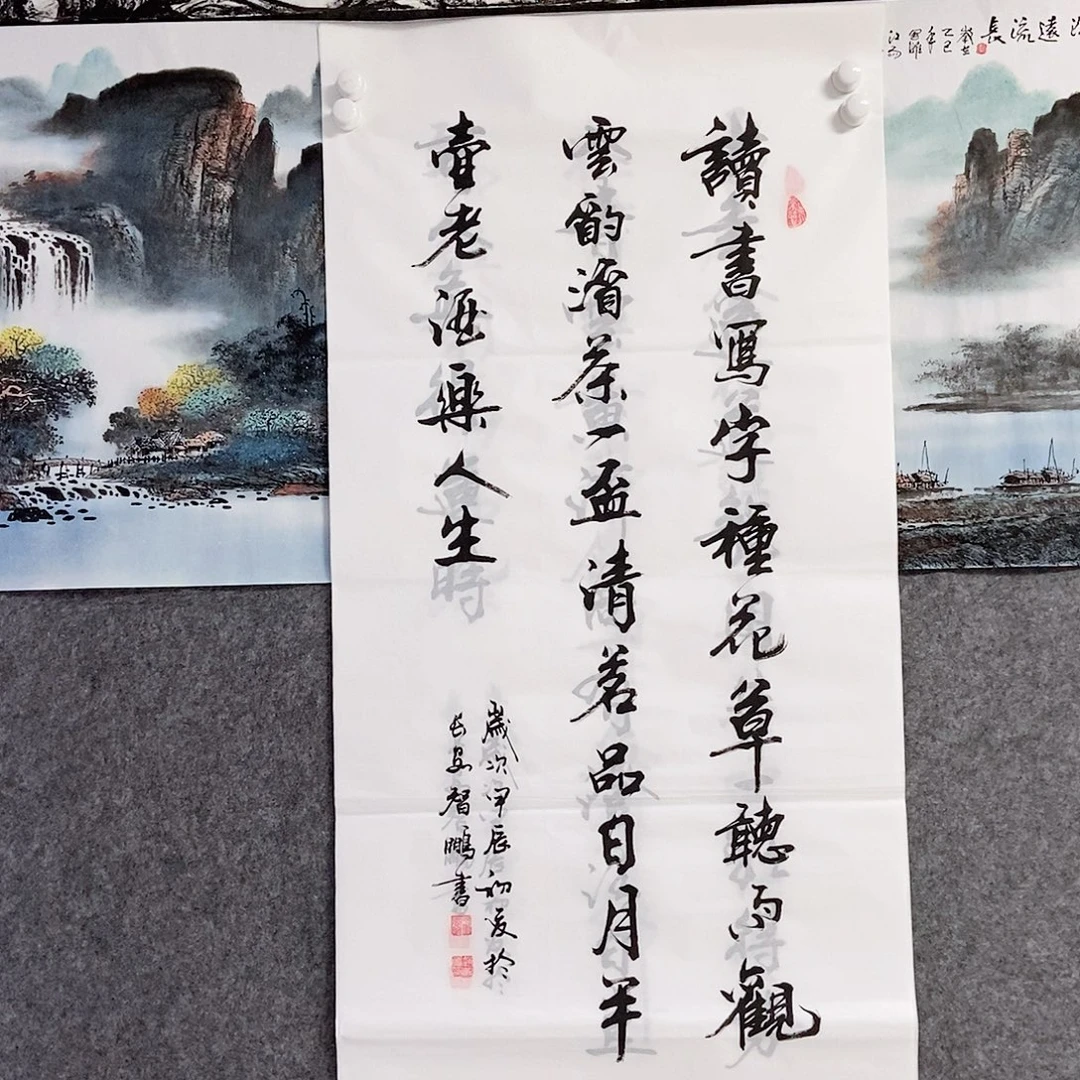 遠流長
歲在
乙巳
年
讀書寫字種花草聽雨觀
雲酌酒茶一盃清茗品日月半
壺老酒樂人生
歲次甲辰初夏於
長安智鵬書